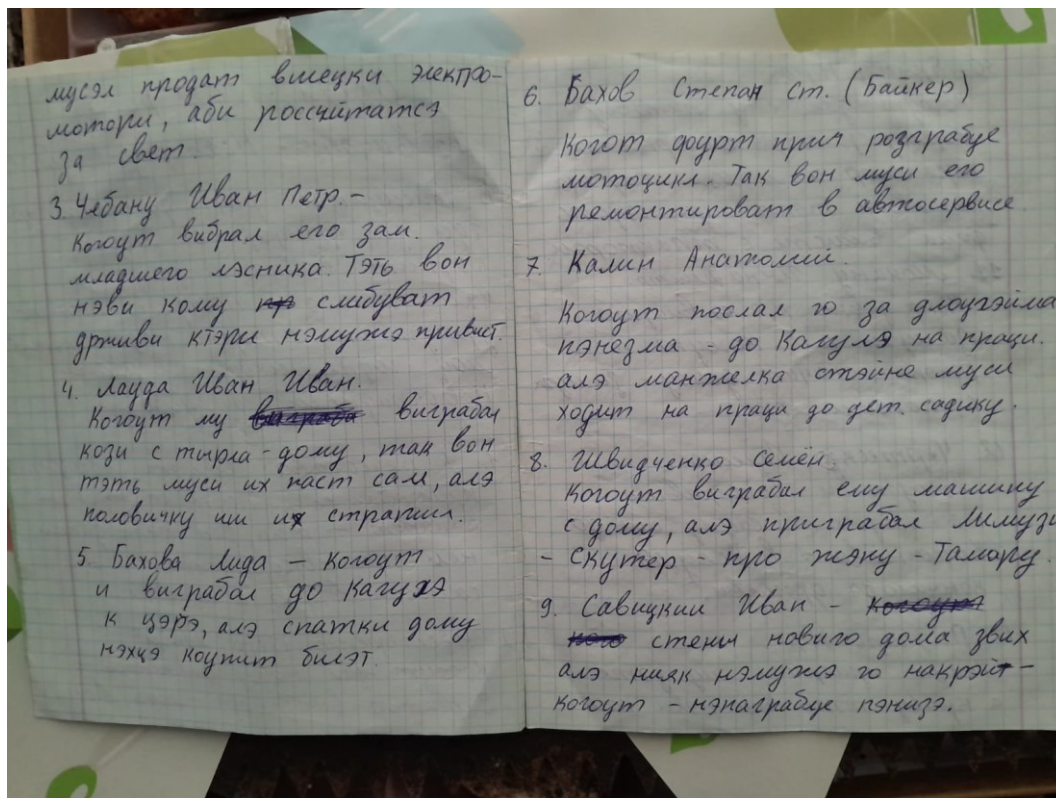 мусэл продат вшецки электро-
мотори, аби россчитатсэ
за свет.
3. Чебану Иван Петр. -
Когоут вибрал его зам.
младшего лэсника. Тэть вон
нэви кому слибуват
држиви ктэри нэмужэ привист.
4. Лауда Иван Иван.
Когоут му виграбал
кози с тырла - дому, так вон
тэть муси их паст сам, алэ
половичку ши их стратил.
5. Бахова Лида - Когоут
и виграбал до Кагулэ
к цэрэ, алэ спатки дому
нэхцэ коупит билэт.
6. Бахов Степан ст. (Байкер)
Когот фурт прич розграбуе
мотоцикл. Так вон муси его
ремонтироват в автосервисе
7. Калин Анатолий.
Когоут послал го за длоугэйма
пэнезма - до Кагулэ на праци.
алэ манжелка стэйне муси
ходит на праци до дет. садику.
8. Швидченко Семён.
Когоут виграбал ему машину
с дому, алэ приграбал Лимузи
- скутер - про жэну - Тамару.
9. Савицкий Иван -
стени новиго дома звих
алэ нияк нэмужэ го накрэйт -
когоут - нэпаграбуе пэнизэ.